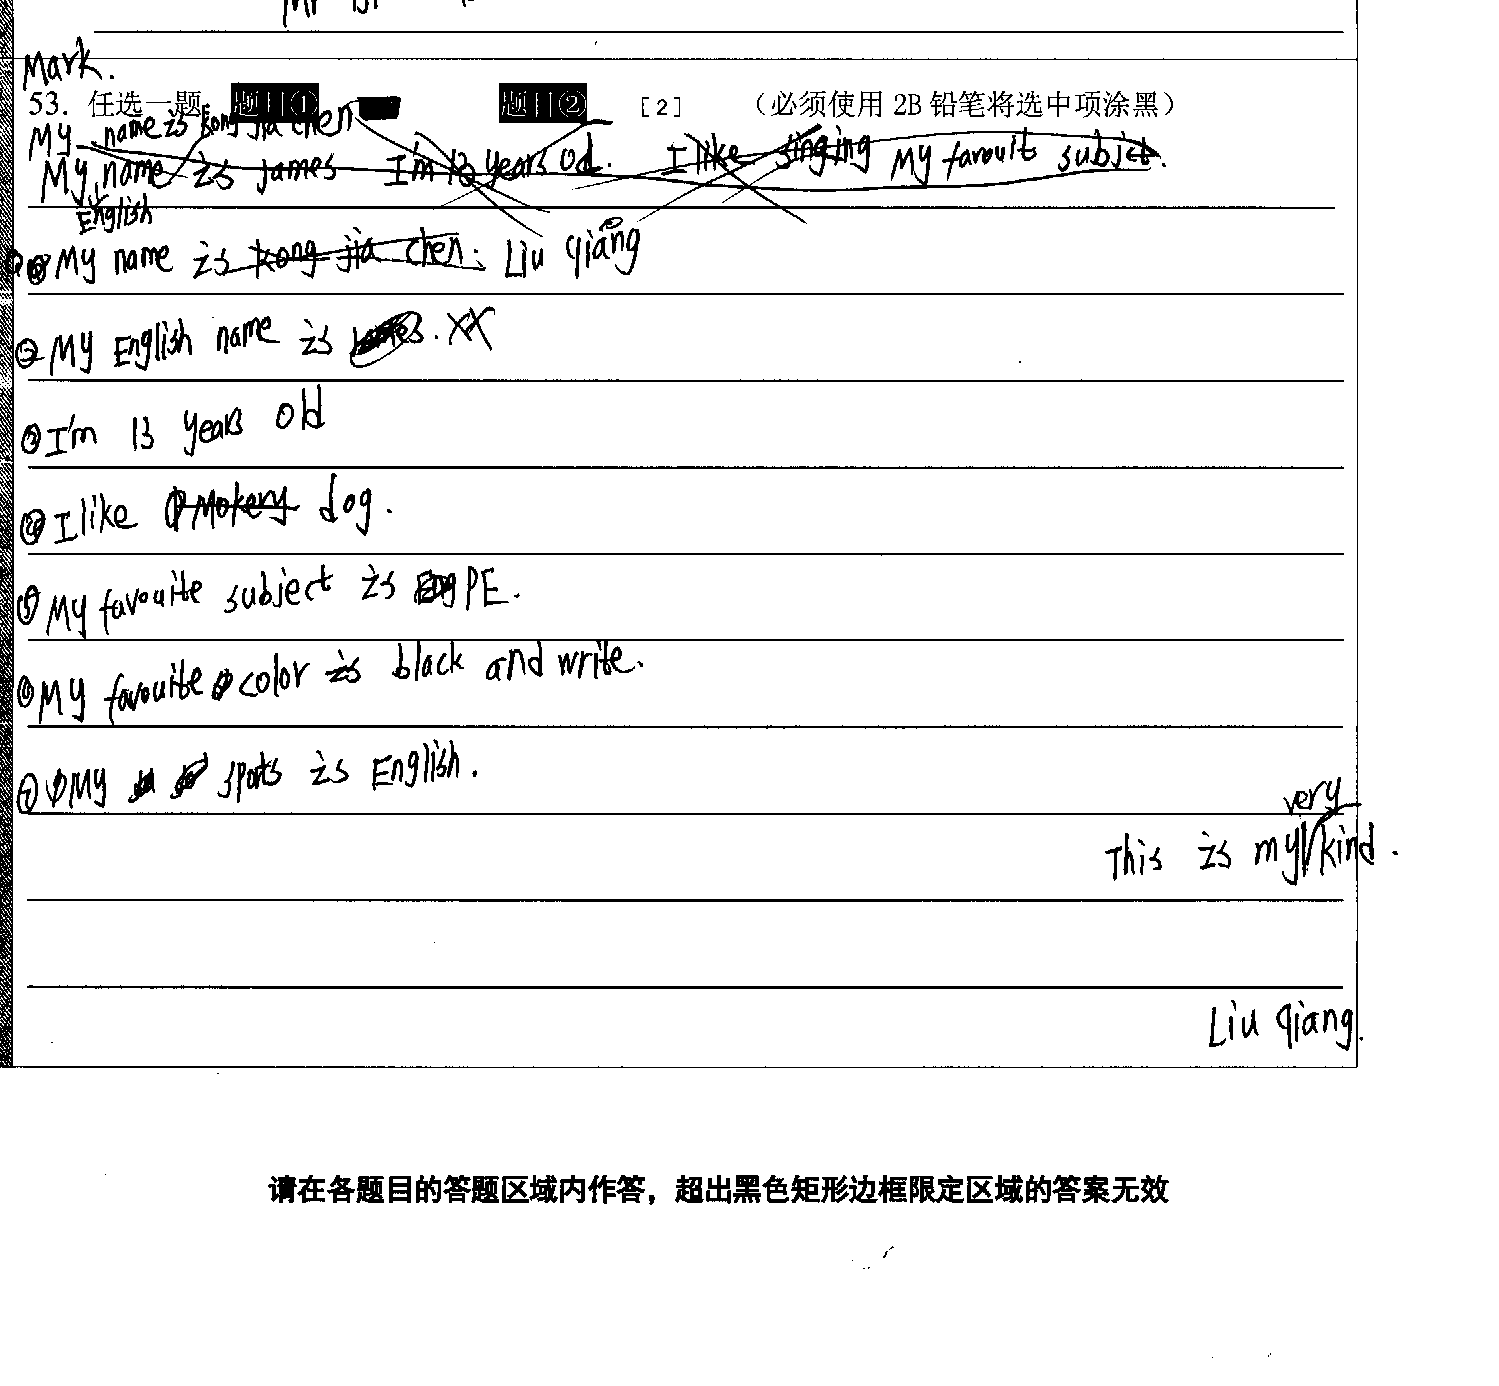 Mark.
53. 任选一题 题目① 题目② [2] （必须使用 2B 铅笔将选中项涂黑）
My name is kong jia chen
My name is james I'm 13 years od. I like singing My favouit subject.
English
My name is kong jia chen. Liu qiang
② My English name is XX
③ I'm 13 years old
④ I like Mokery dog.
⑤ My favouite subject is PE.
⑥ My favouite color is black and write.
⑦ My sports is English.
very
This is my kind.
Liu qiang.
请在各题目的答题区域内作答，超出黑色矩形边框限定区域的答案无效